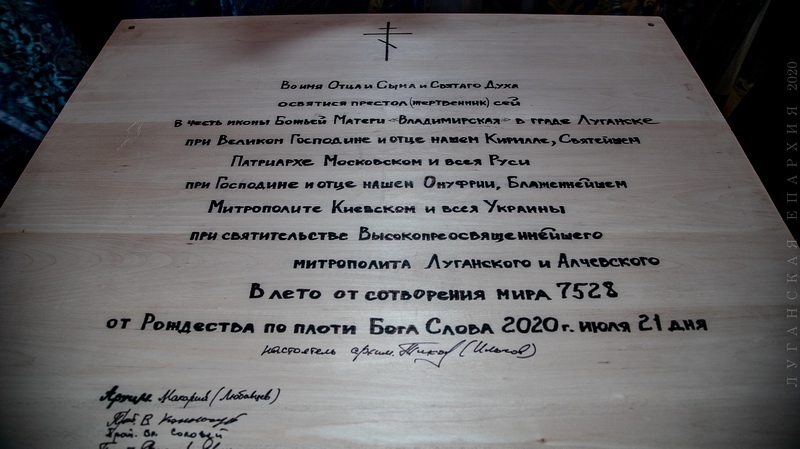 Во имя Отца и Сына и Святаго Духа
освятися престол (жертвенник) сей
в честь иконы Божьей Матери «Владимирская» в граде Луганске
при Великом Господине и отце нашем Кирилле, Святейшем
Патриархе Московском и всея Руси
при Господине и отце нашем Онуфрии, Блаженнейшем
Митрополите Киевском и всея Украины
при святительстве Высокопреосвященнейшего
митрополита Луганского и Алчевского
В лето от сотворения мира 7528
от Рождества по плоти Бога Слова 2020 г. июля 21 дня
настоятель архим. Тихон
Архим. Макарий (Любавцев)
Прот. В.
Прот.
ЛУГАНСКАЯ ЕПАРХИЯ 2020